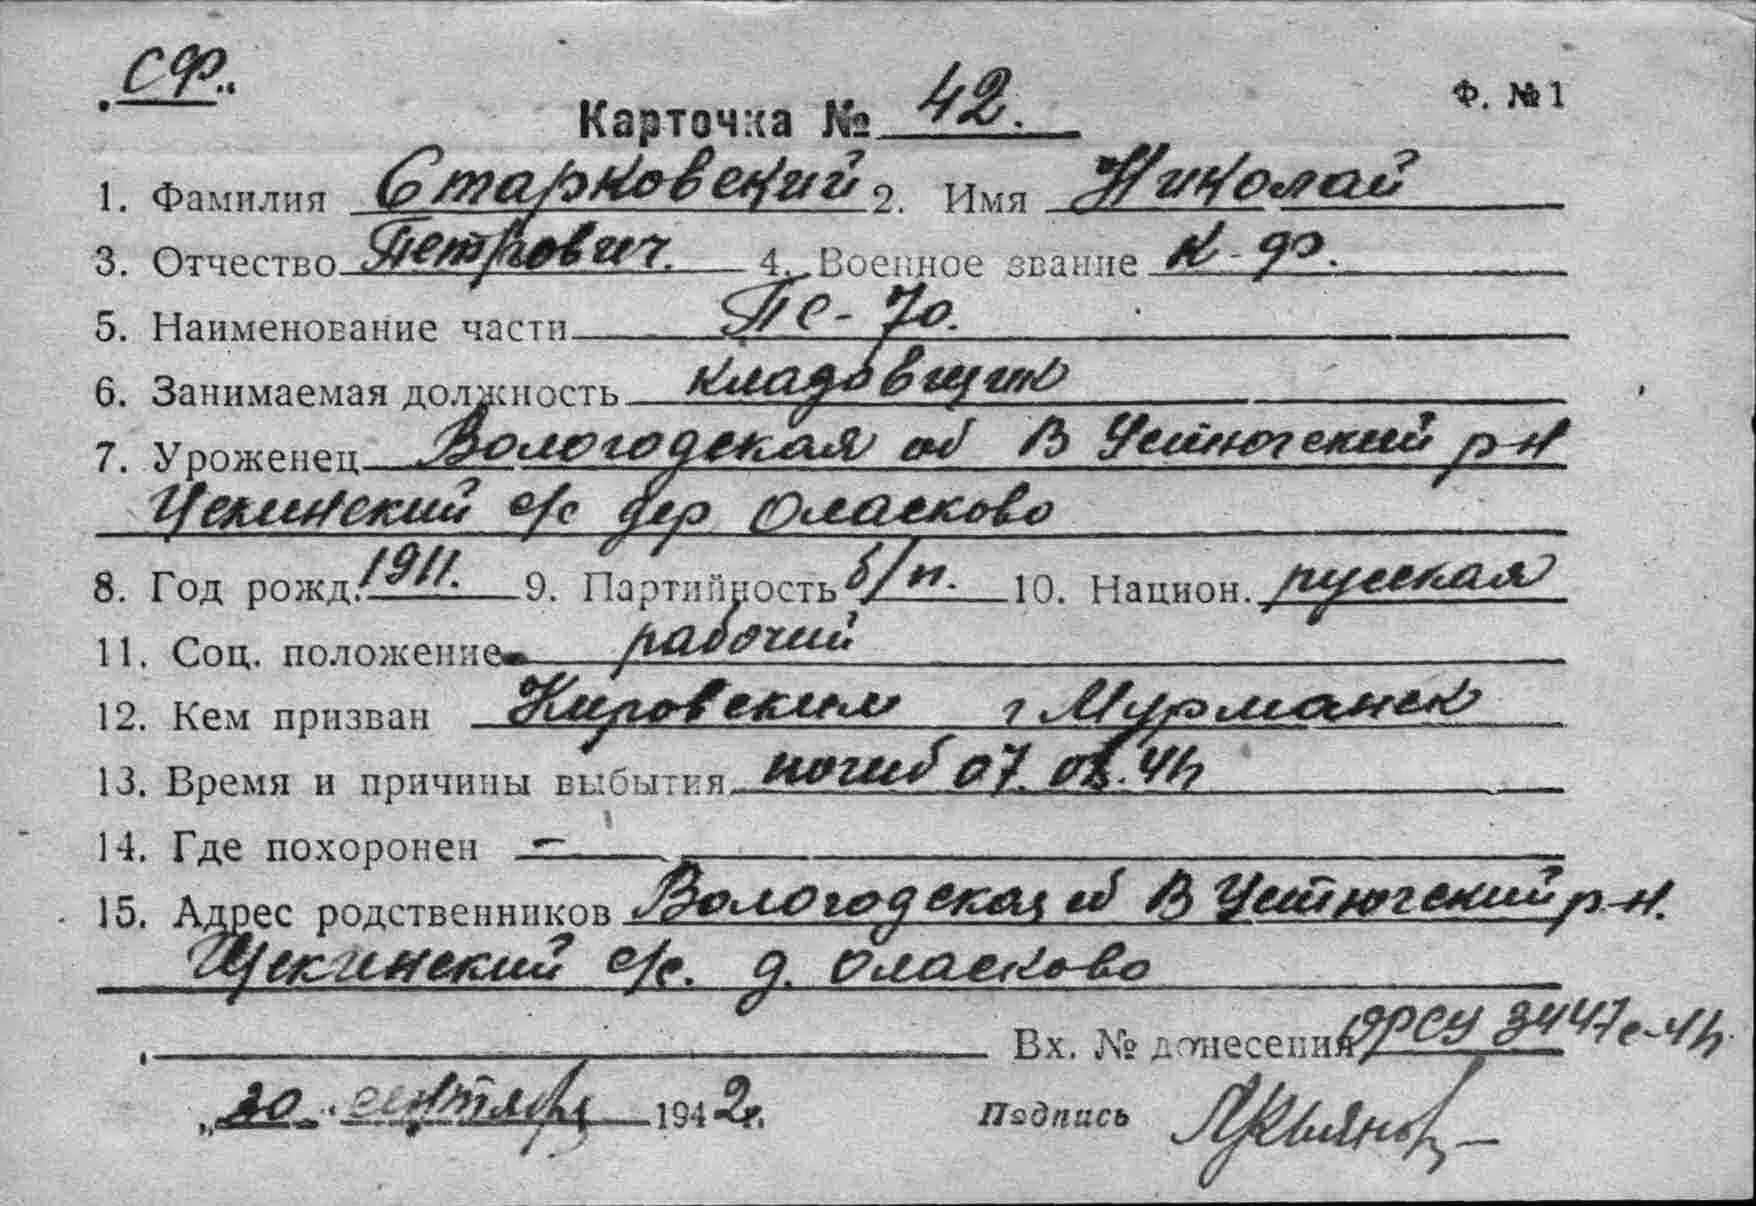 СФ.
Ф. № 1
Карточка № 42.
1. Фамилия Старковский 2. Имя Николай
3. Отчество Петрович. 4. Военное звание к-ф.
5. Наименование части ПС-70.
6. Занимаемая должность кладовщик
7. Уроженец Вологодская об В Устюгский р-н
с/с дер Оласково
8. Год рожд. 1911. 9. Партийность б/п. 10. Национ. русская
11. Соц. положение рабочий
12. Кем призван Кировским г Мурманск
13. Время и причины выбытия погиб 07.
14. Где похоронен —
15. Адрес родственников Вологодская об В Устюгский р-н.
Щекинский с/с. д. Оласково
Вх. № донесения 3447с
"30" сентября 1942г.
Подпись